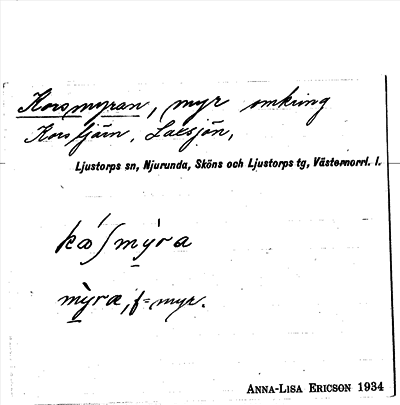 Korsmyran, myr omkring
Korstjärn, Laxsjön,
Ljustorps sn, Njurunda, Sköns och Ljustorps tg, Västernorrl. l.
kòʃmỳra
mỳra, f = myr.
ANNA-LISA ERICSON 1934